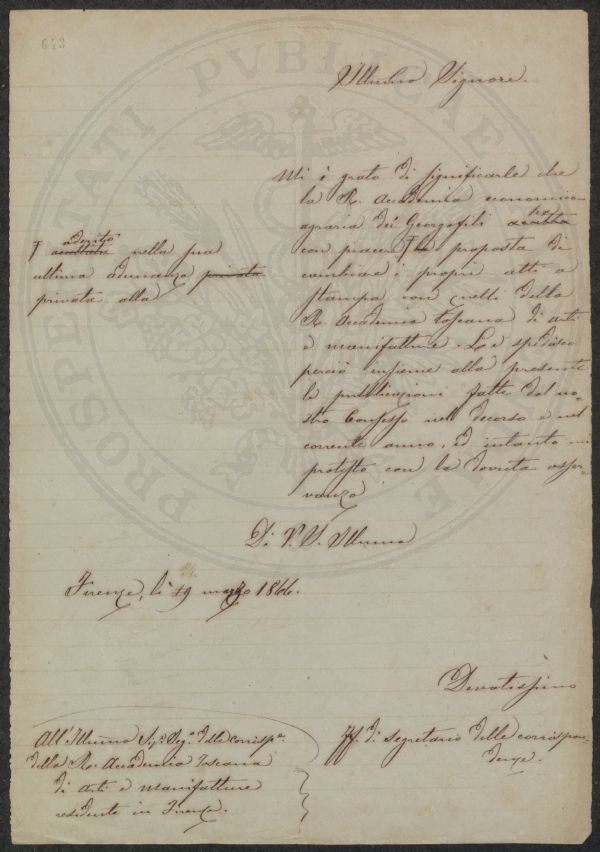 643
Illmo Signore.
Mi è grato di significarle che
la R. Accademia economico
agraria dei Georgofili ha
con piacere la proposta di
cambiare i propri atti a
stampa con quelli della
R. Accademia toscana di arti
e manifatture. Le spedisco
perciò insieme alla presente
le pubblicazioni fatte dal no-
stro Consesso nel decorso e nel
corrente anno, ed intanto mi
protesto con la dovuta osser-
vanza
aderito
accettare nella sua
ultima adunanza privata
privata alla
Di V. S. Illma
Firenze, lì 19 marzo 1866.
Devotissimo
Ff. di segretario delle corrispon-
denze.
All'Illmo Sigr. Segr. delle corrispe.
della R. Accademia toscana
di arti e manifatture
residente in Firenze.
PROSPERITATI PVBLICAE